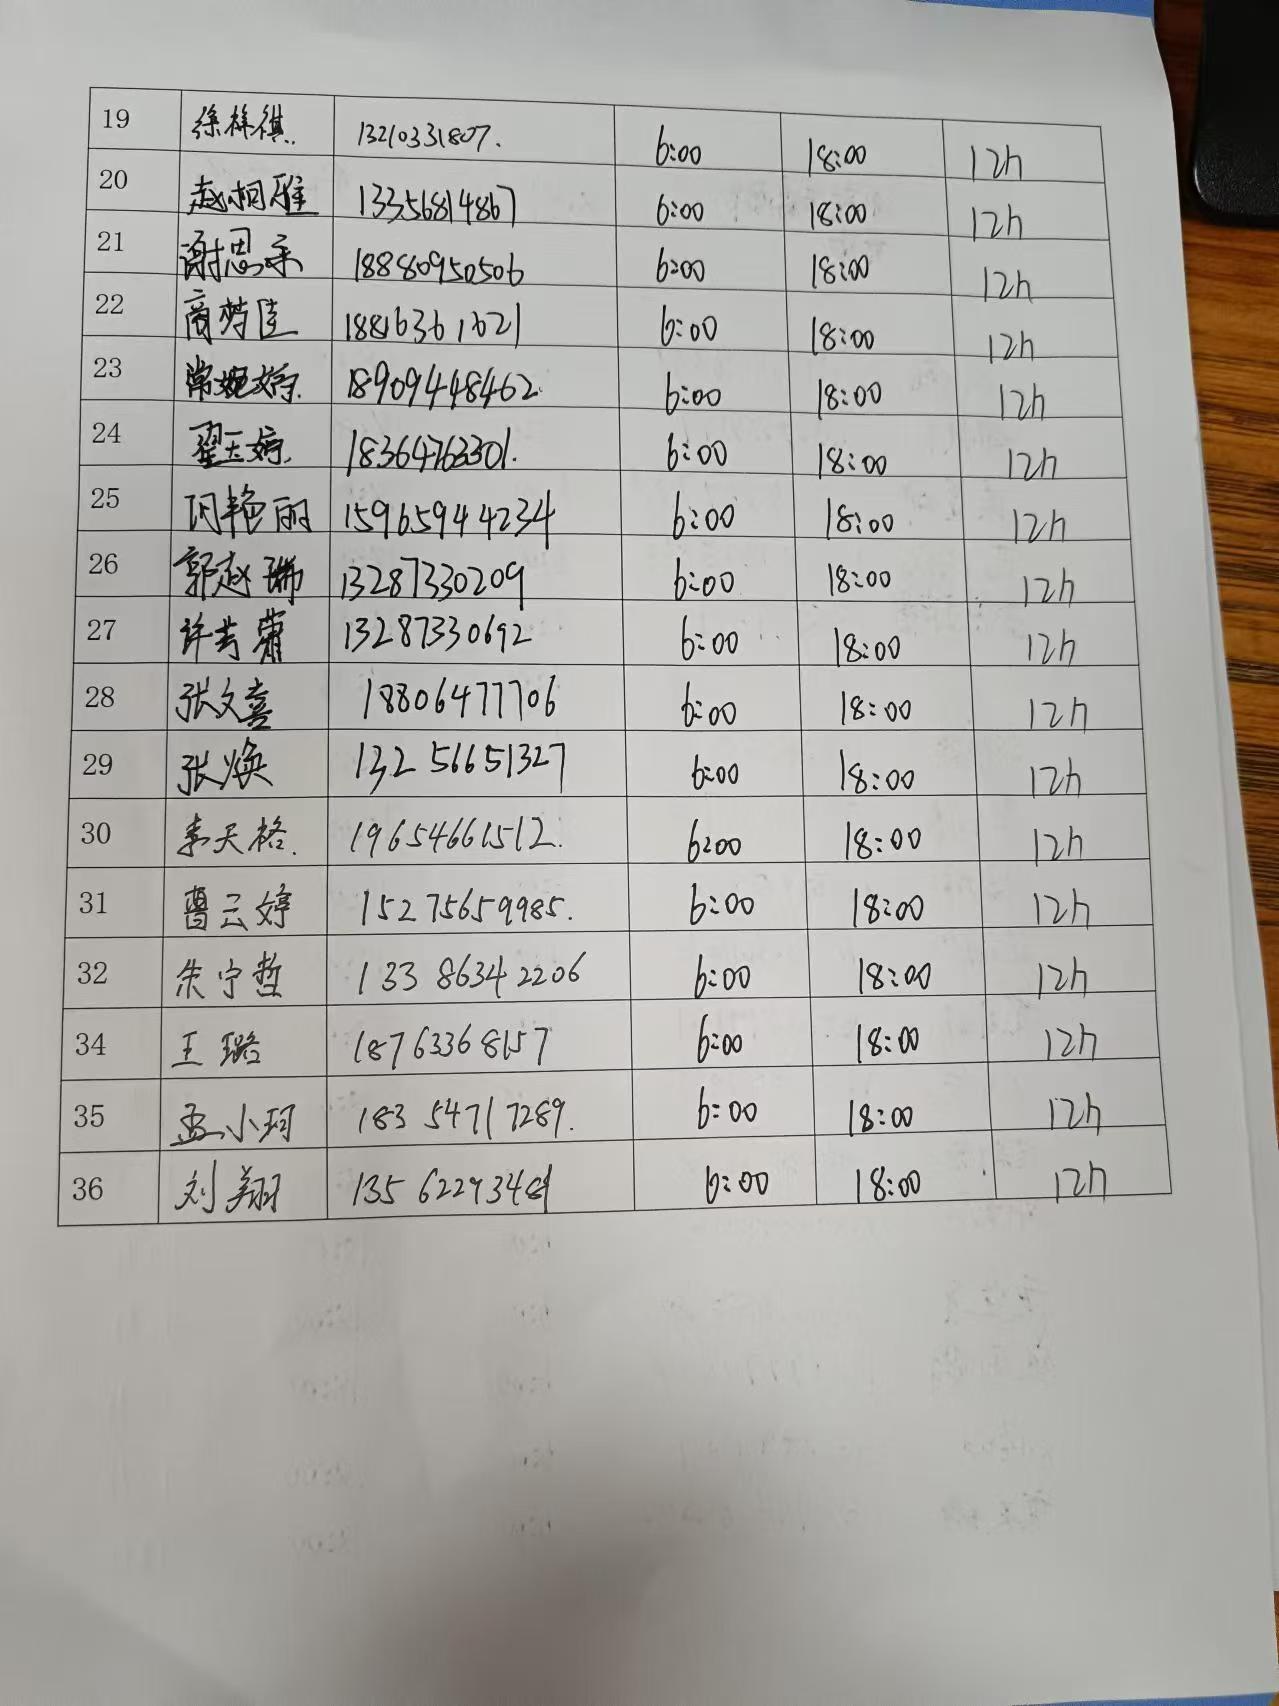 19 徐梓祺. 13210331807. 6:00 18:00 12h
20 赵桐雅 13356814867 6:00 18:00 12h
21 谢思承 18880950506 6:00 18:00 12h
22 商梦佳 18816361621 6:00 18:00 12h
23 常婉婷. 18909448462. 6:00 18:00 12h
24 翟玉婷. 18364763301. 6:00 18:00 12h
25 闫艳丽 15965944234 6:00 18:00 12h
26 郭赵瑞 13287330209 6:00 18:00 12h
27 许芳蕾 13287330692 6:00 18:00 12h
28 张文喜 18806477706 6:00 18:00 12h
29 张焕 13256651327 6:00 18:00 12h
30 李天格. 19654661512. 6:00 18:00 12h
31 曹云婷 15275659985. 6:00 18:00 12h
32 朱宁哲 13386342206 6:00 18:00 12h
34 王璐 18763368157 6:00 18:00 12h
35 孟小珂 18354717289. 6:00 18:00 12h
36 刘翔 6:00 18:00 12h